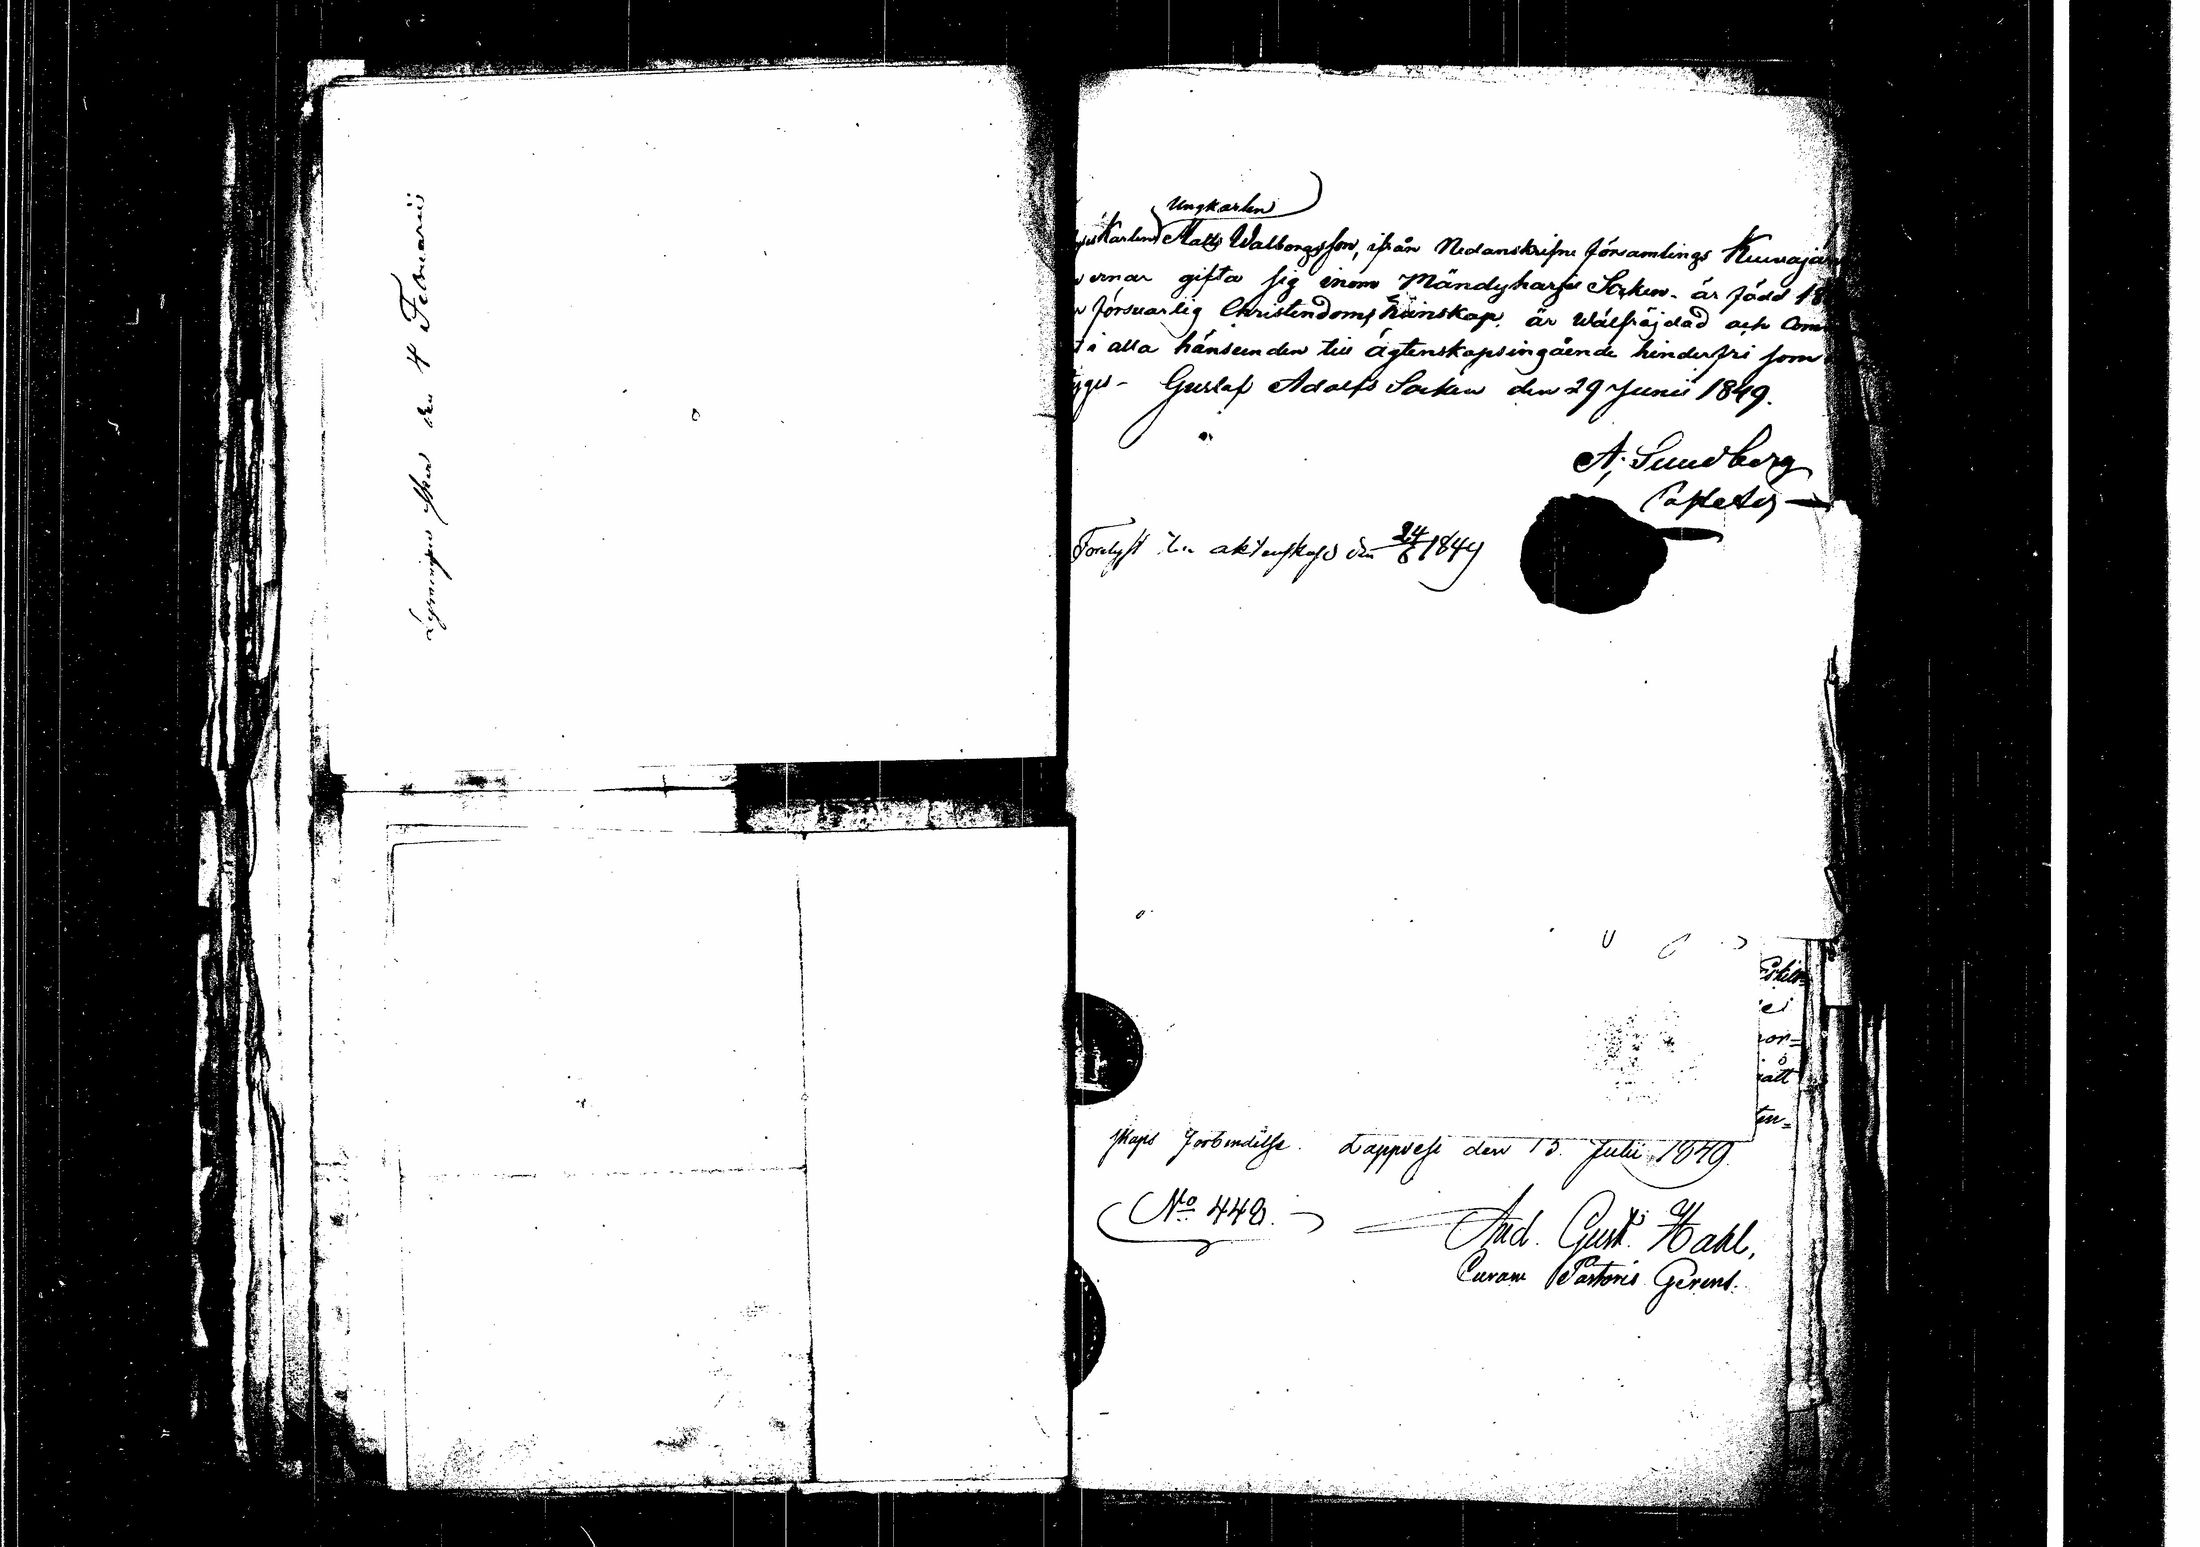 Lysningen sker den 4 Februarii
Ungkarlen
Karlen Matts Walborgsson, ifrån Nedanskrifne församlings
ernar gifta sig inom Mändyharju Socken. är född 18
försvarlig Christendoms kunskap, är Wälfräjdad och
t i alla hänseenden till ägtenskapsingående hinderfri som
yges - Gustaf Adolfs Socken den 29 Junii 1849.
A. Sundberg
Pastor
Forelyst äktenskap den 24/6 1849
ei
on=
ratt
ten=
skaps förbindelse. Lappvesi den 13. Julii 1849.
No 448.
And. Gust. Hahl,
Curam Pastoris Gerens.